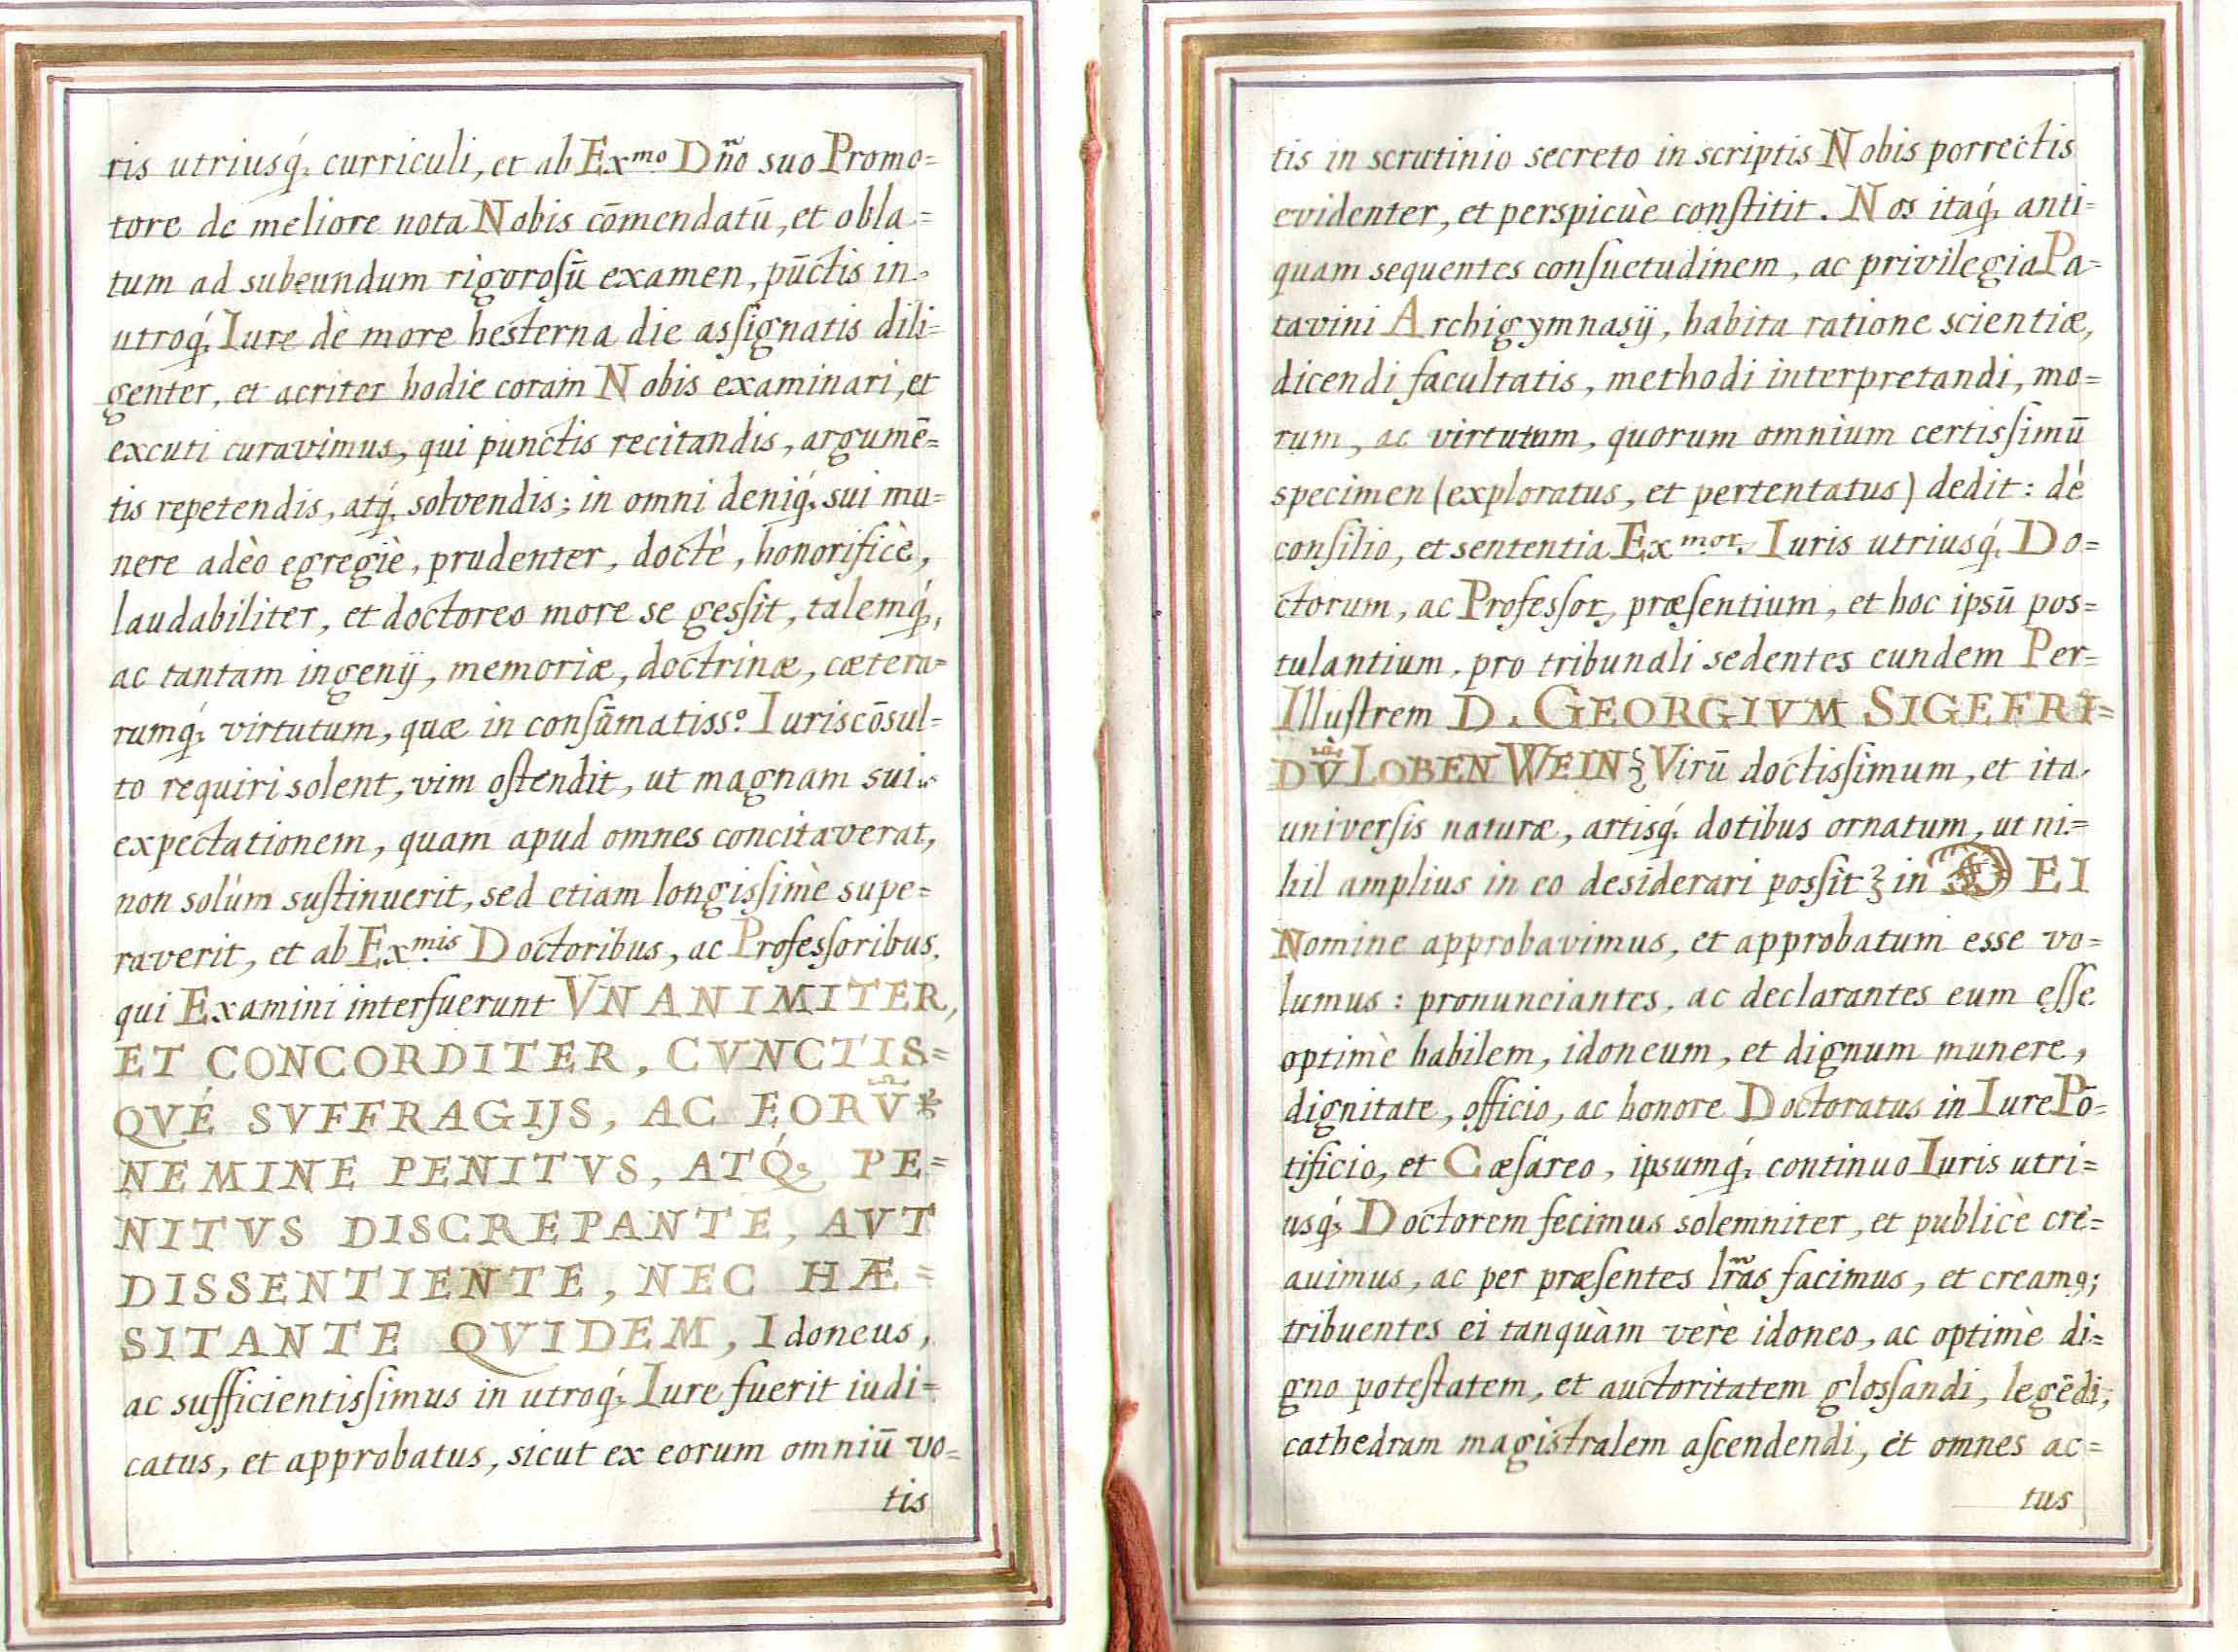 ris utriusq́; curriculi, et ab Exmo. Dño suo Promo=
tore de meliore nota Nobis cōmendatū, et obla=
tum ad subeundum rigoroſū examen, pūctis in
utroq́; Iure de more hesterna die asſignatis dili=
genter, et acriter hodie coram Nobis examinari, et
excuti curavimus, qui punctis recitandis, argumē=
tis repetendis, atq́; solvendis; in omni deniq́; sui mu=
nere adèo egregiè, prudenter, doctè, honorificè,
laudabiliter, et doctoreo more se gesſit, talemq́;,
ac tantam ingenij, memoriæ, doctrinæ, cætera=
rumq́; virtutum, quæ in conſūmatiss.o Iuriscōsul=
to requiri solent, vim oſtendit, ut magnam sui
expectationem, quam apud omnes concitaverat,
non solùm suſtinuerit, sed etiam longisſimè supe=
raverit, et ab Ex.mis Doctoribus, ac Profesſoribus.
qui Examini interfuerunt VNANIMITER,
ET CONCORDITER, CVNCTIS=
QVÉ SVFFRAGIJS, AC EORV̄
NEMINE PENITVS, ATQ́; PE=
NITVS DISCREPANTE, AVT
DISSENTIENTE, NEC HÆ=
SITANTE QVIDEM, Idoneus,
ac sufficientisſimus in utroq́; Iure fuerit iudi=
catus, et approbatus, sicut ex eorum omniū vo=
tis
tis in scrutinio secreto in scriptis Nobis porrectis
evidenter, et perspicuè conſtitit. Nos itaq́; anti=
quam sequentes conſuetudinem, ac privilegia Pa=
tavini Archigymnasij, habita ratione scientiæ,
dicendi facultatis, methodi interpretandi, mo=
rum, ac virtutum, quorum omnium certisſimū
specimen (exploratus, et pertentatus) dedit: dè
conſilio, et sententia Exmor. Iuris utriusq́; Do=
ctorum, ac Profesſor, præſentium, et hoc ipsū pos=
tulantium, pro tribunali sedentes eundem Per=
Illuſtrem D. GEORGIVM SIGEFRI=
DV̄ LOBENWEIN Virū doctisſimum, et ita
univerſis naturæ, artisq́; dotibus ornatum, ut ni=
hil amplius in eo desiderari posſit in DEI
Nomine approbavimus, et approbatum esse vo=
lumus: pronunciantes, ac declarantes eum eſſe
optimè habilem, idoneum, et dignum munere,
dignitate, officio, ac honore Doctoratus in Iure Pō=
tificio, et Cæſareo, ipsumq́; continuo Iuris utri=
usq́; Doctorem fecimus solemniter, et publicè cre=
auimus, ac per præſentes lr̃as facimus, et creamꝰ;
tribuentes ei tanquàm verè idoneo, ac optimè di=
gno poteſtatem, et auctoritatem glosſandi, legēdi,
cathedram magistralem aſcendendi, et omnes ac=
tus